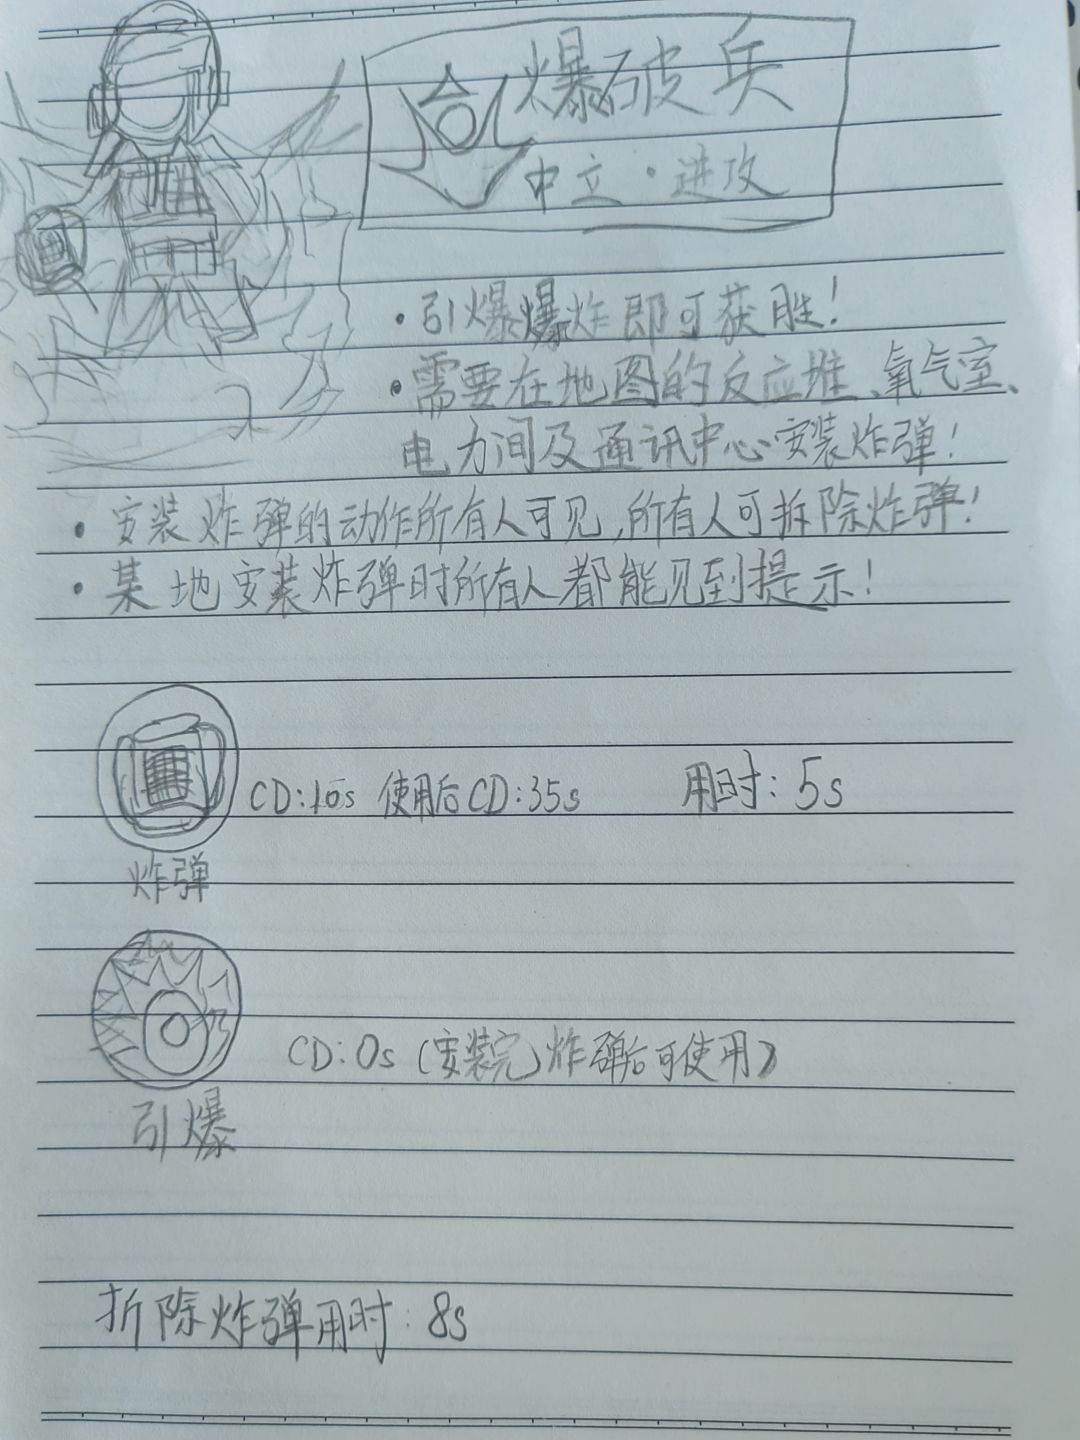 爆破兵
中立·进攻
·引爆爆炸即可获胜!
·需要在地图的反应堆、氧气室、
电力间及通讯中心安装炸弹!
·安装炸弹的动作所有人可见,所有人可拆除炸弹!
·某地安装炸弹时所有人都能见到提示!
CD:10s 使用后CD:35s 用时:5s
炸弹
CD:0s(安装完)炸弹后可使用)
引爆
折除炸弹用时:8s